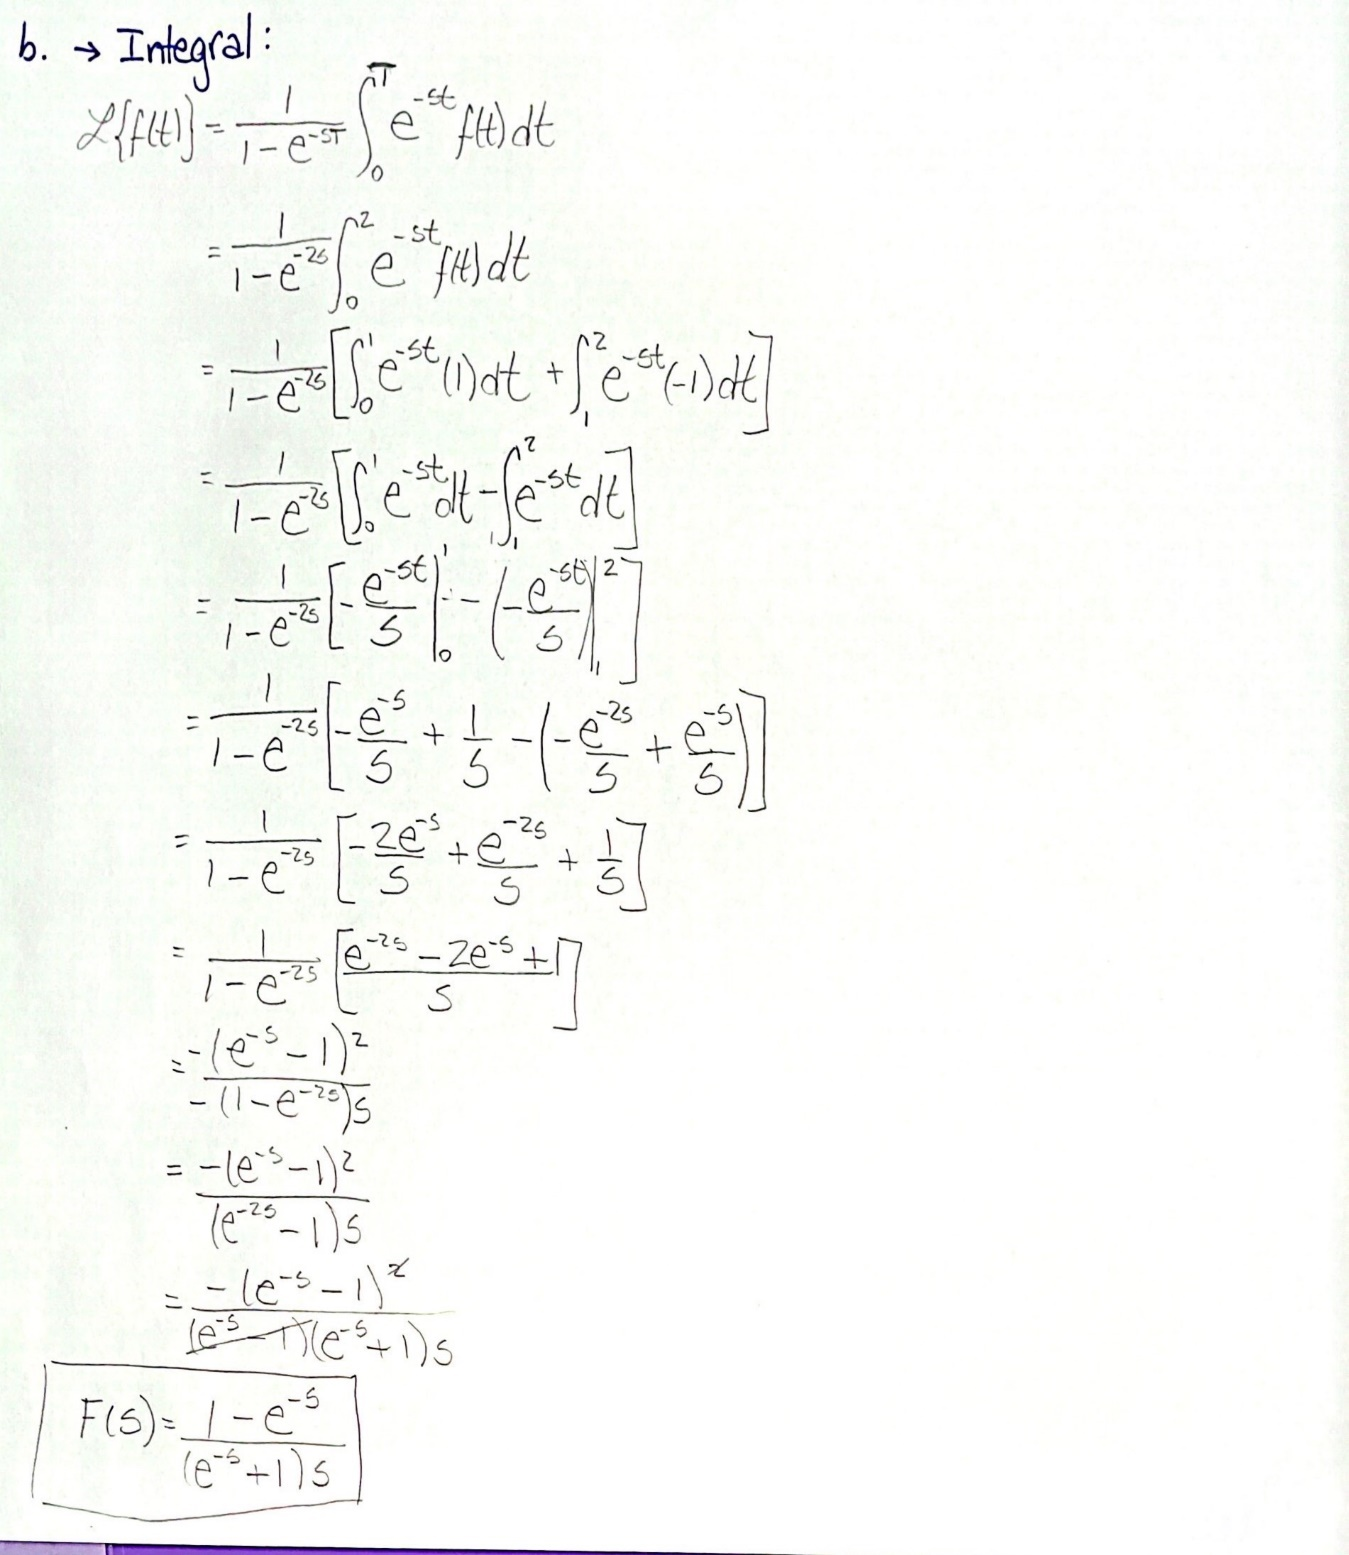 b. → Integral:
ℒ{f(t)} = 1/(1-e^(-sT)) ∫_0^T e^(-st) f(t) dt
= 1/(1-e^(-2s)) ∫_0^2 e^(-st) f(t) dt
= 1/(1-e^(-2s)) [∫_0^1 e^(-st) (1) dt + ∫_1^2 e^(-st) (-1) dt]
= 1/(1-e^(-2s)) [∫_0^1 e^(-st) dt - ∫_1^2 e^(-st) dt]
= 1/(1-e^(-2s)) [-e^(-st)/s |_0^1 - (-e^(-st)/s)|_1^2]
= 1/(1-e^(-2s)) [-e^(-s)/s + 1/s - (-e^(-2s)/s + e^(-s)/s)]
= 1/(1-e^(-2s)) [-2e^(-s)/s + e^(-2s)/s + 1/s]
= 1/(1-e^(-2s)) [(e^(-2s) - 2e^(-s) + 1)/s]
= -(e^(-s) - 1)^2 / (-(1-e^(-2s))s)
= -(e^(-s) - 1)^2 / ((e^(-2s) - 1)s)
= -(e^(-s) - 1)^2 / ((e^(-s) - 1)(e^(-s) + 1)s)
F(s) = (1 - e^(-s)) / ((e^(-s) + 1)s)